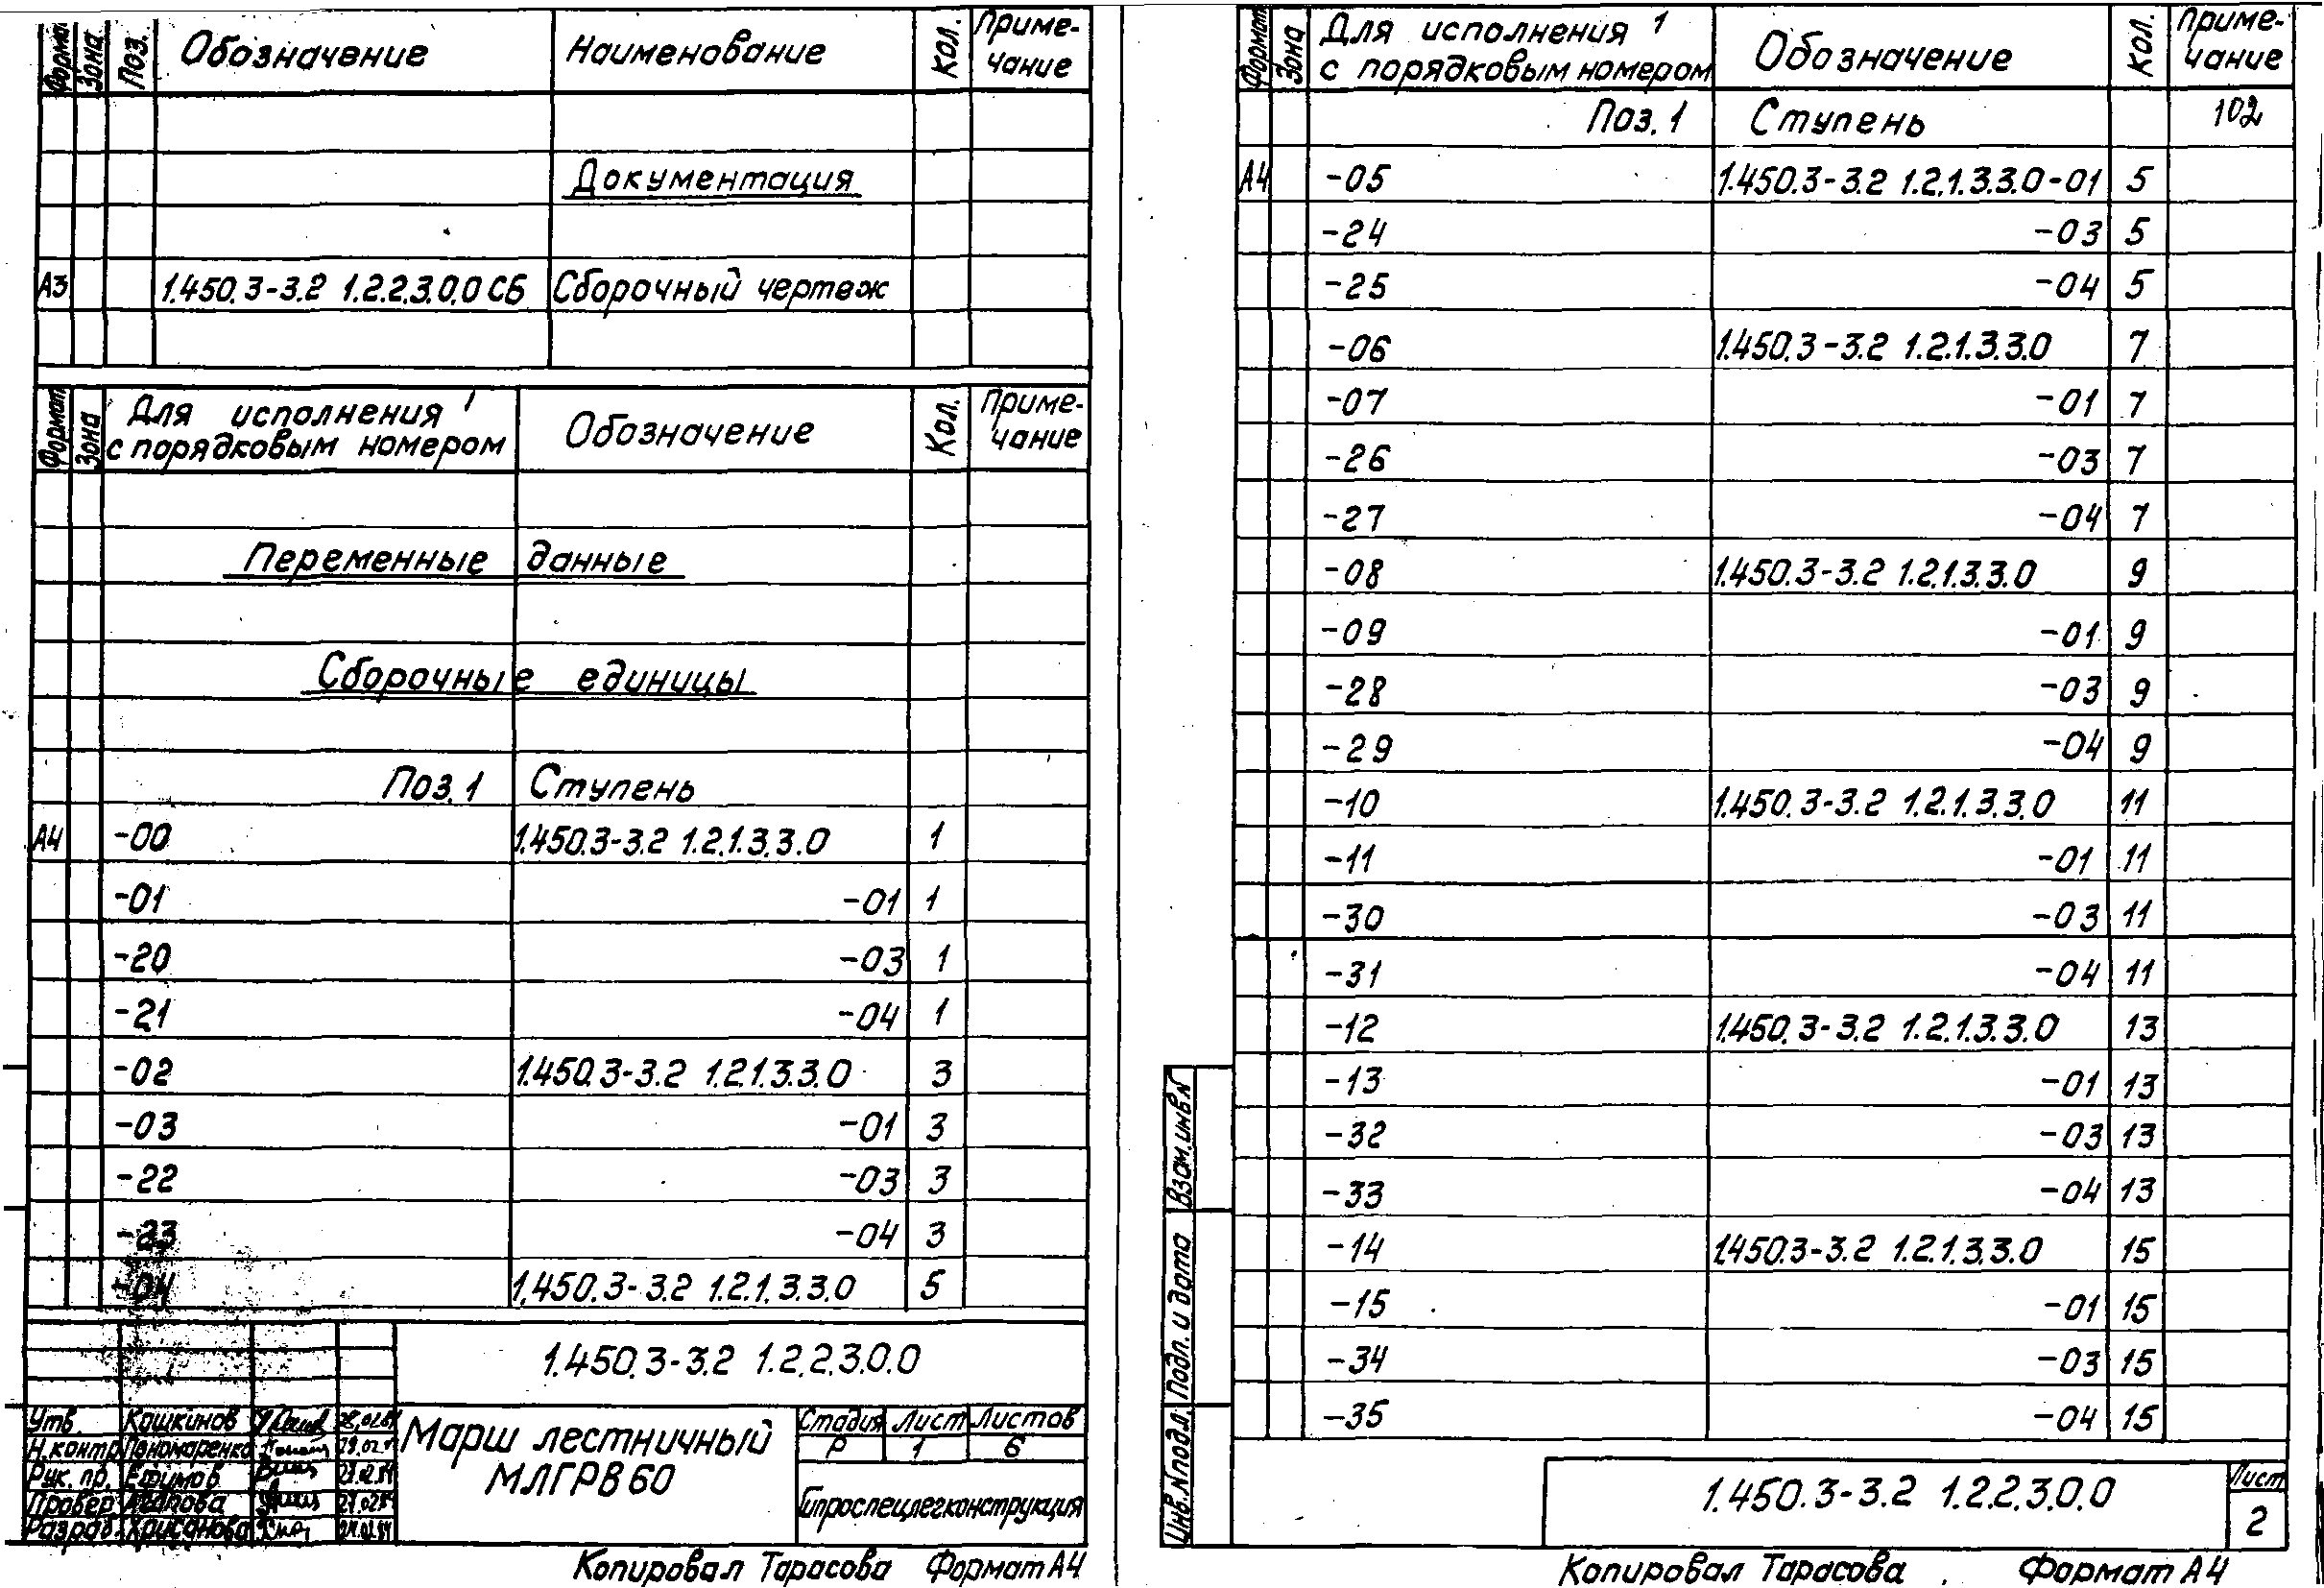 Формат Зона Поз. Обозначение Наименование Кол. Приме-
чание
Документация
А3 1.450.3-3.2 1.2.2.3.0.0 СБ Сборочный чертеж
Формат Зона Для исполнения с порядковым номером Обозначение Кол. Приме-
чание
Переменные данные
Сборочные единицы
Поз.1 Ступень
А4 -00 1.450.3-3.2 1.2.1.3.3.0 1
-01 -01 1
-20 -03 1
-21 -04 1
-02 1.450.3-3.2 1.2.1.3.3.0 3
-03 -01 3
-22 -03 3
-23 -04 3
-04 1.450.3-3.2 1.2.1.3.3.0 5
1.450.3-3.2 1.2.2.3.0.0
Утв. Кошкинов
Н.контр. Пономаренко
Рук. пр. Ефимов
Провер. Агапова
Разраб. Хрисанова
Марш лестничный
МЛГРВ 60
Стадия Лист Листов
Р 1 6
Гипроспецлегконструкция
Копировал Тарасова Формат А4
Формат Зона Для исполнения с порядковым номером Обозначение Кол. Приме-
чание
Поз.1 Ступень 102
А4 -05 1.450.3-3.2 1.2.1.3.3.0-01 5
-24 -03 5
-25 -04 5
-06 1.450.3-3.2 1.2.1.3.3.0 7
-07 -01 7
-26 -03 7
-27 -04 7
-08 1.450.3-3.2 1.2.1.3.3.0 9
-09 -01 9
-28 -03 9
-29 -04 9
-10 1.450.3-3.2 1.2.1.3.3.0 11
-11 -01 11
-30 -03 11
-31 -04 11
-12 1.450.3-3.2 1.2.1.3.3.0 13
-13 -01 13
-32 -03 13
-33 -04 13
-14 1.450.3-3.2 1.2.1.3.3.0 15
-15 -01 15
-34 -03 15
-35 -04 15
Взам.инв.N
Подп. и дата
Инв.N подл.
1.450.3-3.2 1.2.2.3.0.0
Лист
2
Копировал Тарасова Формат А4